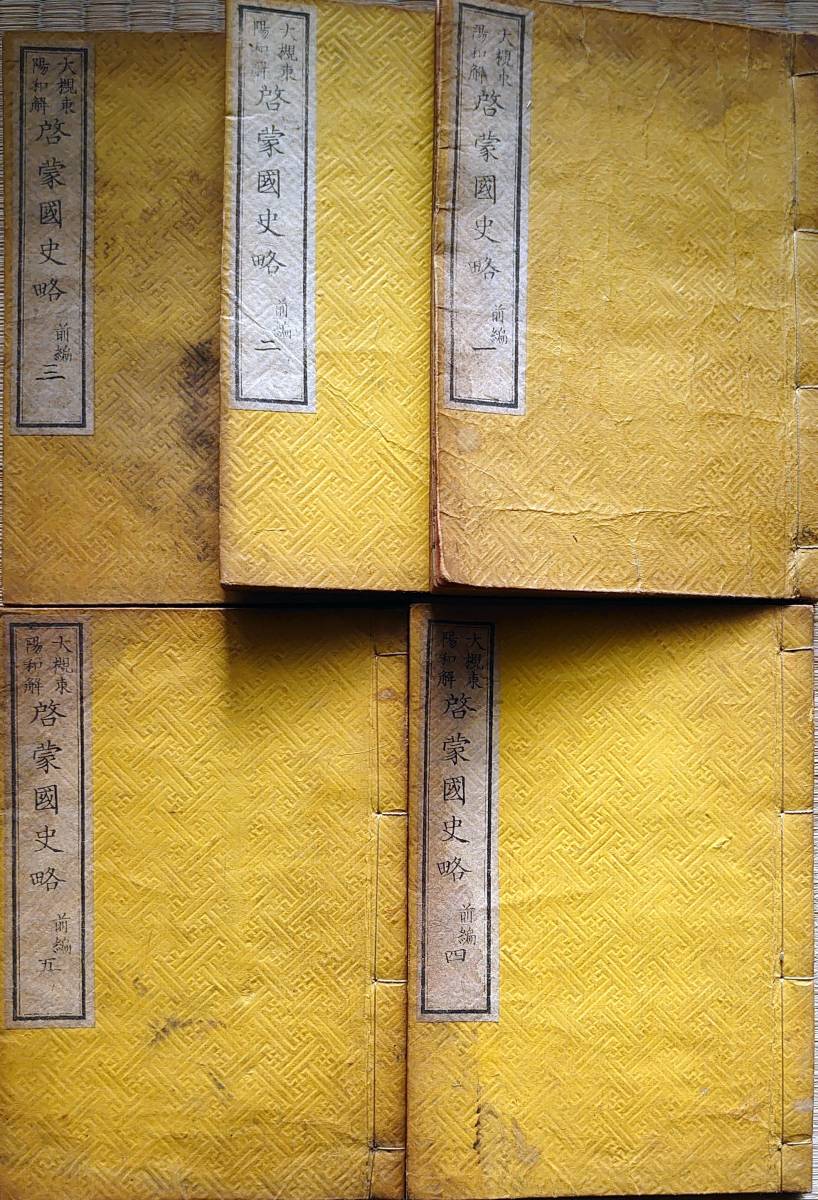 大槻東
陽和解
啓蒙國史略
前編
一
大槻東
陽和解
啓蒙國史略
前編
二
大槻東
陽和解
啓蒙國史略
前編
三
大槻東
陽和解
啓蒙國史略
前編
四
大槻東
陽和解
啓蒙國史略
前編
五